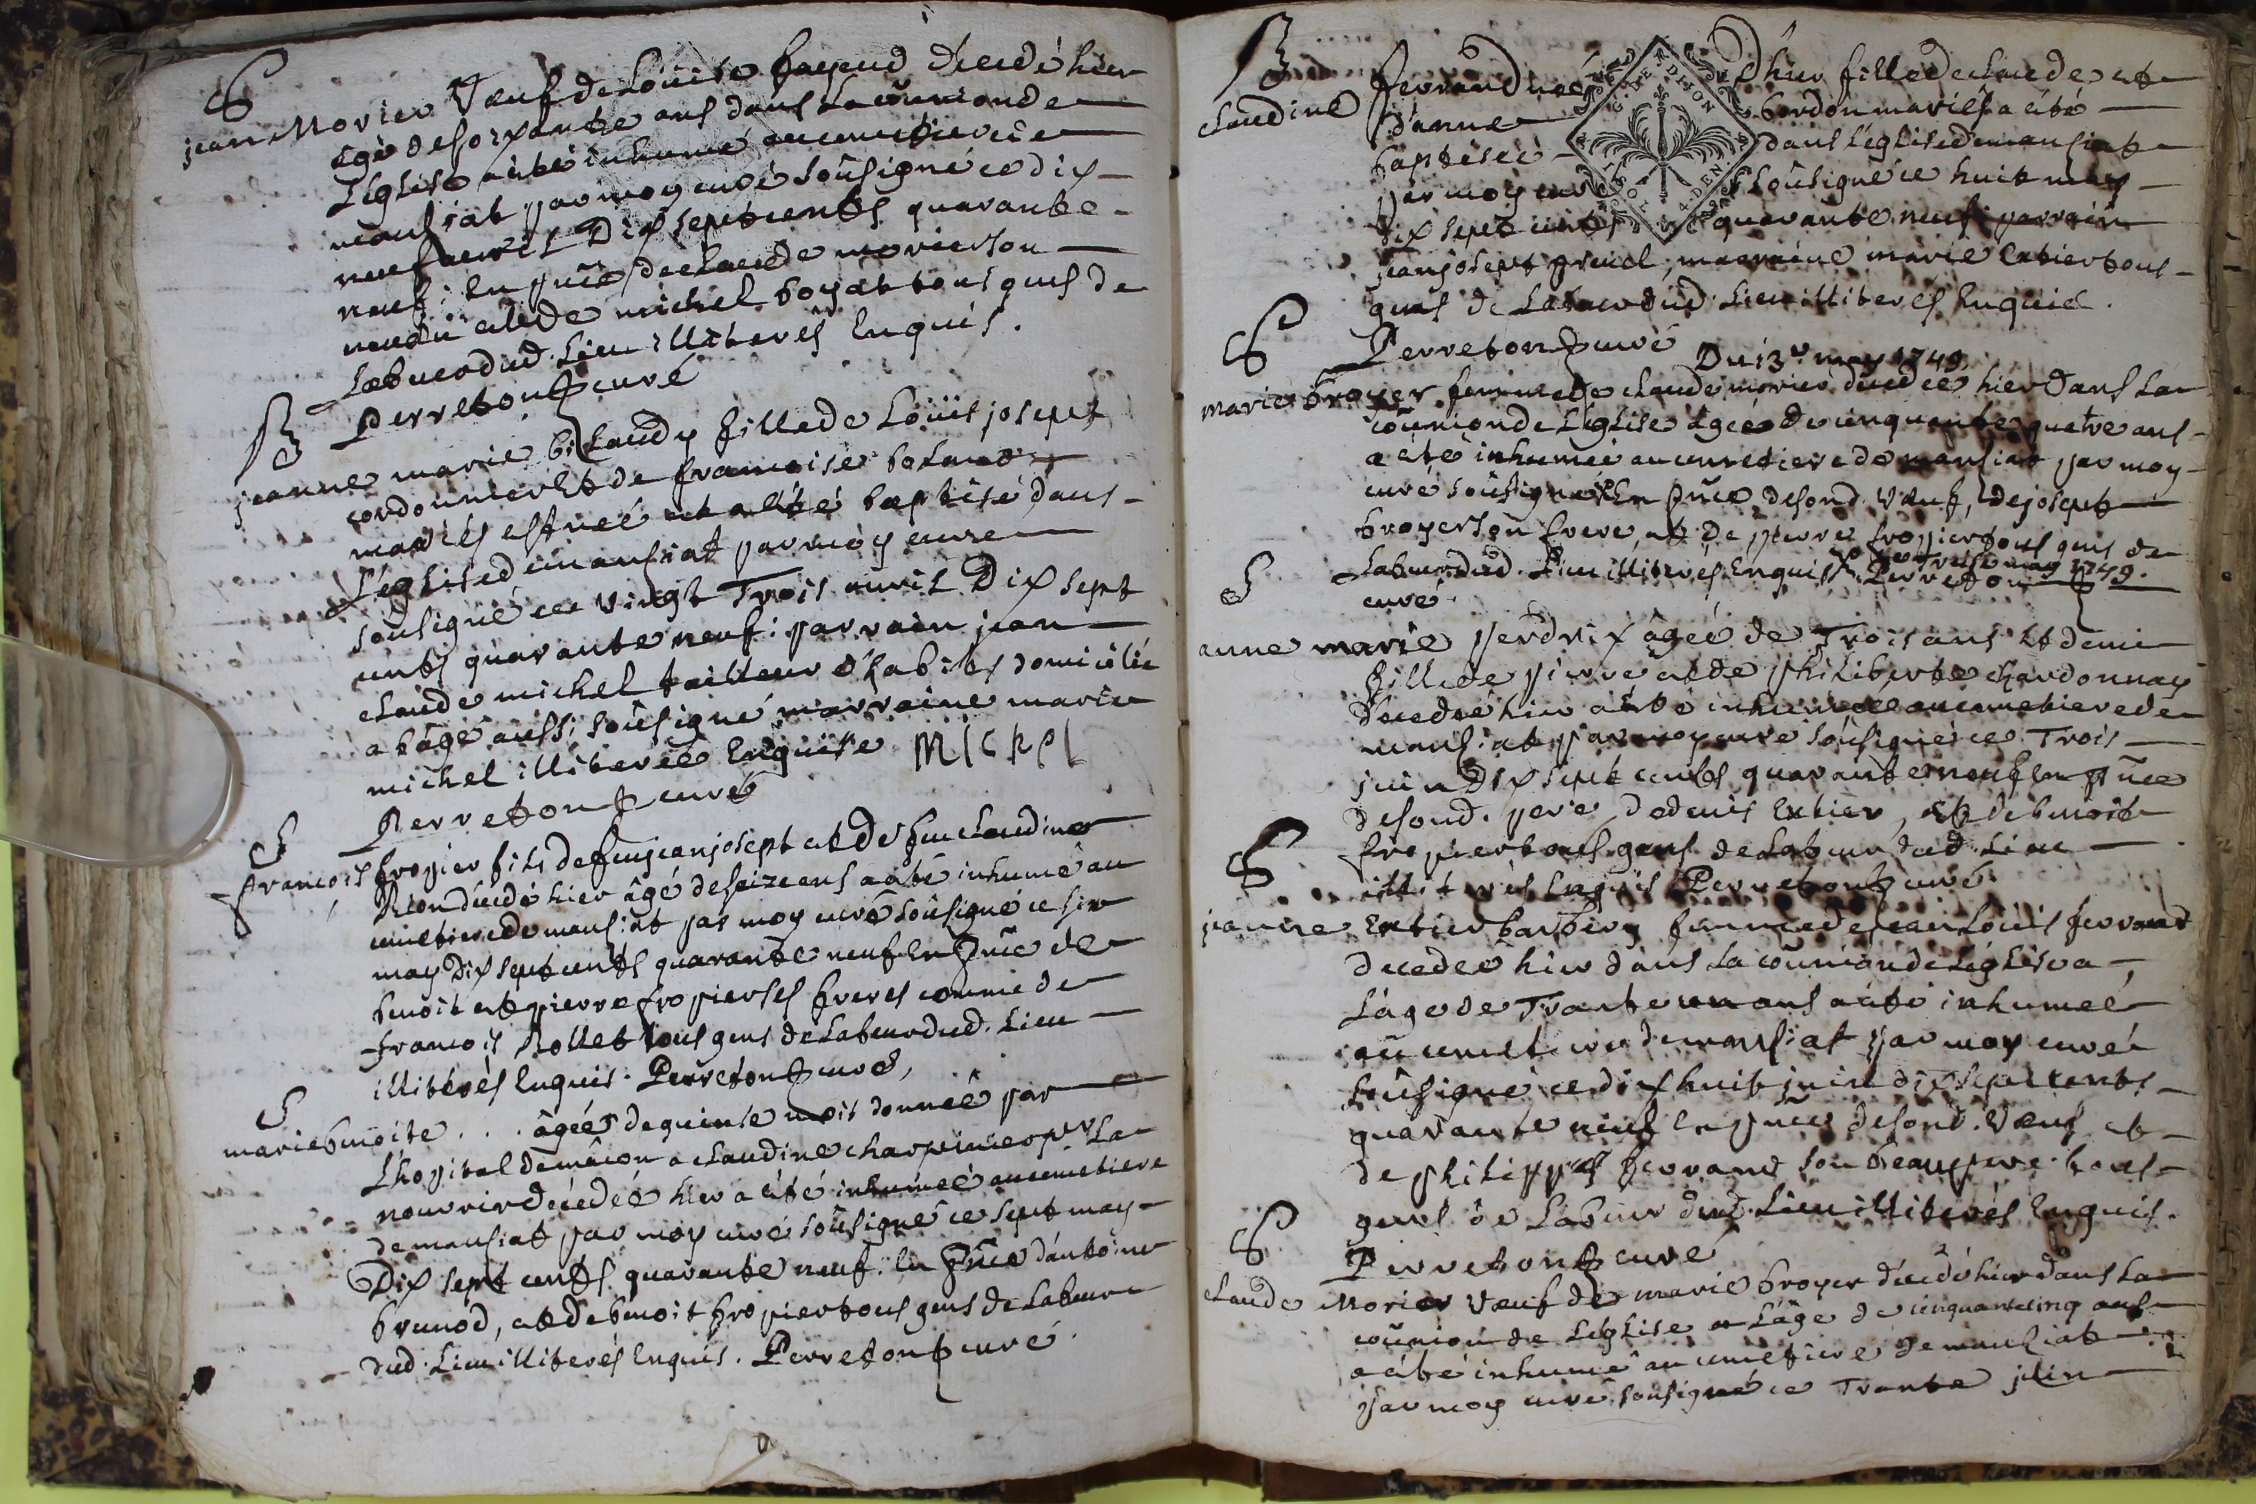 S
jean Morier Vœuf de Loüise fayend décédé hier
agé de soixante ans dans la coûmion de
L'église a été inhumé au cemetiere de
mansiat par moy curé soûsigné ce dix-
neuf avril Dix sept cents quarante-
neuf: en pñce de claude morier son
neveu et de michel boyat tous gens de
Labeur dud. Lieu illiterés Enquis.
Perreton curé
B
jeanne marie bilLaudy fille de Loüis joseph
cordonnier Et de francoise
mariés est neé et a été baptisé dans-
L'église de mansiat par moy curé
soûsigné ce vingt Trois avril Dix sept
cents quarante neuf: parrain jean
claude michel tailleur d'habits domicilié
a bâgé aussi soûsigné marraine marie
michel illiterée Enquise Michel
Perreton curé
S
francois fropier fils de feu jean joseph et de feu claudine
Rion décédé hier âgé de seize ans a été inhumé au
cemetiere de mansiat par moy curé soûsigné ce six
may Dix sept cents quarante neuf En pñce de
benoit et pierre fropier ses freres comme de
francois Rollet tous gens de Labeur dud. Lieu
illitérés Enquis. Perreton curé,
S
marie benoite . . . âgée de quinse mois donnée par
L'hopital de mâcon a claudine charpine pour La
nourrir décédeé hier a été inhumeé au cemetiere
de mansiat par moy curé soûsigné ce sept may-
Dix sept cents quarante neuf. En pñce d'antoine
brunod, et de benoit fropier tous gens de Labeur
dud. Lieu illiterés Enquis. Perreton curé.
B
claudine ferrand neé d'hier fille de claude et
d'anne bordon mariés a été
baptiseé dans L'église de mansiat
par moy curé soûsigné ce huit may
dix sept cents quarante neuf parrain
jean joseph , marraine marie Extier tous
gens de Labeur dud. Lieu illiterés Enquis.
Perreton curé
G. DE DIJON
SOL 4 DEN.
S
Du 13e may 1749.
marie broyer femme de claude morier décédeé hier dans La
coûmion de L'église âgeé de cinquante quatre ans-
a été inhumeé au cemetiere de mansiat par moy-
curé soûsigné En pñce de son d. Vœuf, de joseph
broyer son frere, et de pierre fropier tous gens de
Labeur dud. Lieu illiterés Enquis ce treise may 1749. Perreton
curé
S
anne marie perdrix âgeé de Trois ans Et demi
fille de pierre et de philiberte chardonnay
décédeé hier a été inhumeé au cemetiere de
mansiat par moy curé soûsigné ce Trois
juin Dix sept cents quarante neuf En pñce
de son d. pere, de denis Extier, et de benoit
fropier tous gens de Labeur dud. Lieu
illiterés Enquis Perreton curé
S
jeanne Extier barbery femme de jean Loüis ferrand
decedeé hier dans La coûmion de L'église a
L'âge de Trante un ans a été inhumeé
au cemetiere de mansiat par moy curé
soûsigné ce dix huit juin dix sept cents-
quarante neuf En pñce de son d. Vœuf et
de philippe ferrand son beau pere tous-
gens de Labeur dud. Lieu illiterés Enquis.
Perreton curé
S
claude Morier Vœuf de marie broyer décédé hier dans La
coûmion de L'église a L'âge de cinquante cinq ans
a été inhumé au cemetiere de mansiat
par moy curé soûsigné ce Trante juin